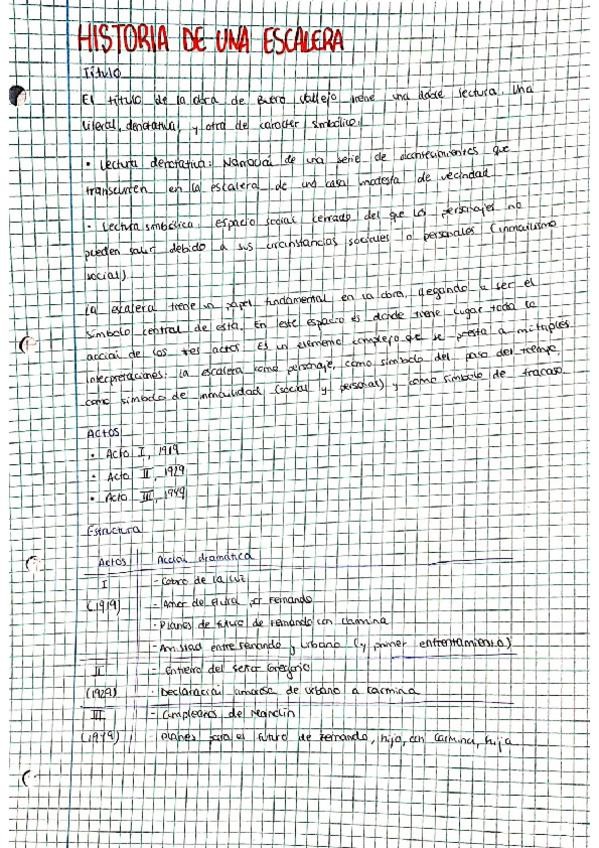 HISTORIA DE UNA ESCALERA
Título
El título de la obra de Buero Vallejo tiene una doble lectura. Una
literal, denotativa, y otra de caracter simbólico.
• Lectura denotativa: Narración de una serie de acontecimientos que
transcurren en la escalera de una casa modesta de vecindad
• Lectura simbólica: espacio social cerrado del que los personajes no
pueden salir debido a sus circunstancias sociales o personales (inmovilismo
social)
La escalera tiene un papel fundamental en la obra, llegando a ser el
símbolo central de esta. En este espacio es donde tiene lugar toda la
acción de los tres actos. Es un elemento complejo que se presta a múltiples
interpretaciones: la escalera como personaje, como símbolo del paso del tiempo,
como símbolo de inmovilidad (social y personal) y como símbolo de fracaso.
Actos
• Acto I, 1919
• Acto II, 1929
• Acto III, 1949
Estructura
Actos Acción dramática
I - Cobro de la luz
(1919) - Amor de Elvira por Fernando
- Planes de futuro de Fernando con Carmina
- Amistad entre Fernando y Urbano (y primer enfrentamiento)
II - Entierro del señor Gregorio
(1929) - Declaración amorosa de Urbano a Carmina
III - Cumpleaños de Manolín
(1949) - planes para el futuro de Fernando, hijo, con Carmina, hija